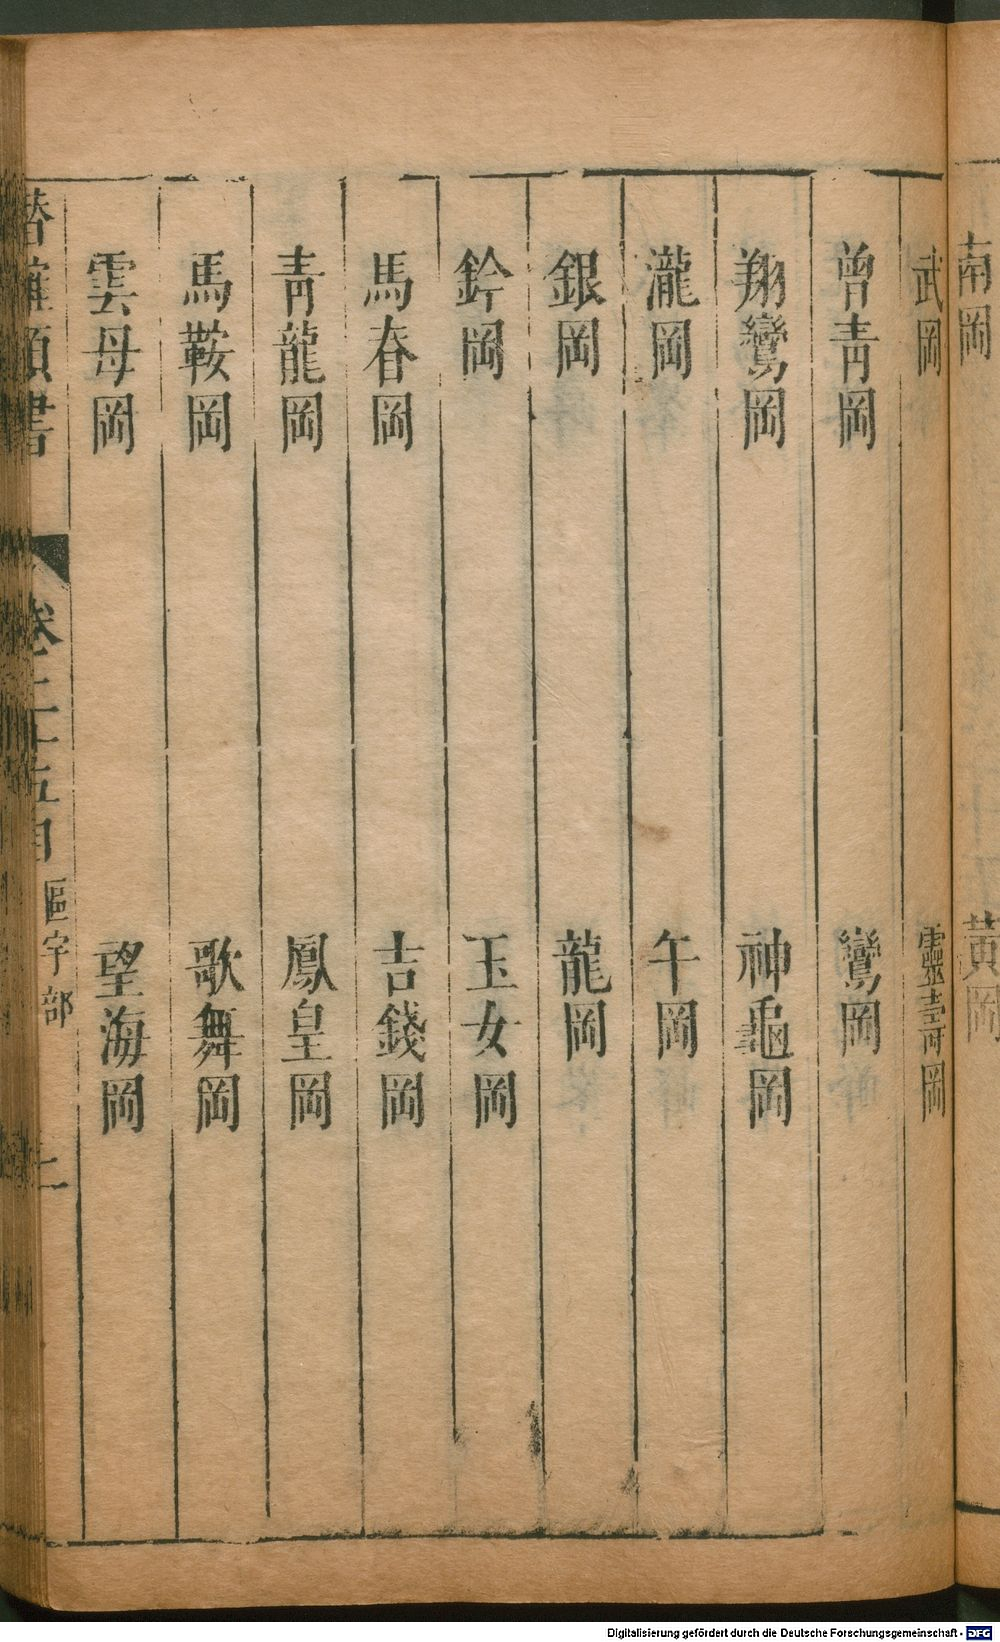 南岡
黃岡
武岡
靈壽岡
曾青岡
鸞岡
翔鸞岡
神龜岡
瀧岡
午岡
銀岡
龍岡
鈐岡
玉女岡
馬舂岡
吉錢岡
青龍岡
鳳皇岡
馬鞍岡
歌舞岡
雲母岡
望海岡
潛確類書
卷二十五目
區字部
Digitalisierung gefördert durch die Deutsche Forschungsgemeinschaft - DFG